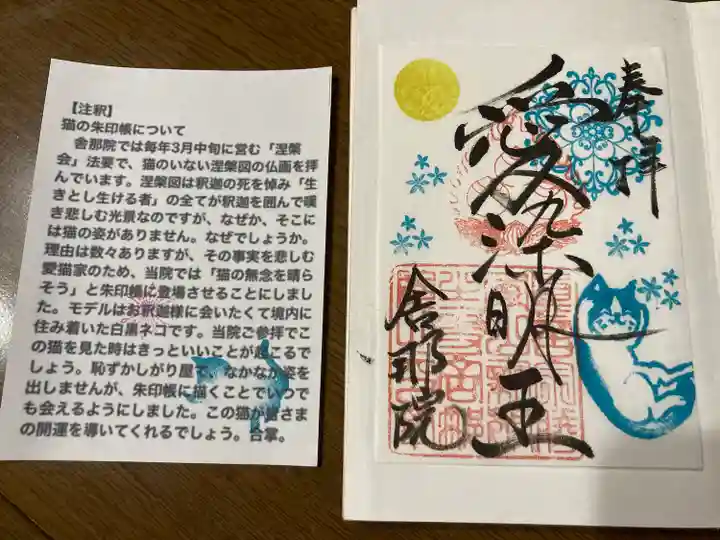 【注釈】
猫の朱印帳について
舎那院では毎年3月中旬に営む「涅槃
会」法要で、猫のいない涅槃図の仏画を拝
んでいます。涅槃図は釈迦の死を悼み「生
きとし生ける者」の全てが釈迦を囲んで嘆
き悲しむ光景なのですが、なぜか、そこに
は猫の姿がありません。なぜでしょうか。
理由は数々ありますが、その事実を悲しむ
愛猫家のため、当院では「猫の無念を晴ら
そう」と朱印帳に登場させることにしまし
た。モデルはお釈迦様に会いたくて境内に
住み着いた白黒ネコです。当院ご参拝でこ
の猫を見た時はきっといいことが起こるで
しょう。恥ずかしがり屋で、なかなか姿を
出しませんが、朱印帳に描くことでいつで
も会えるようにしました。この猫が皆さま
の開運を導いてくれるでしょう。合掌。
奉拝
愛染明王
舎那院